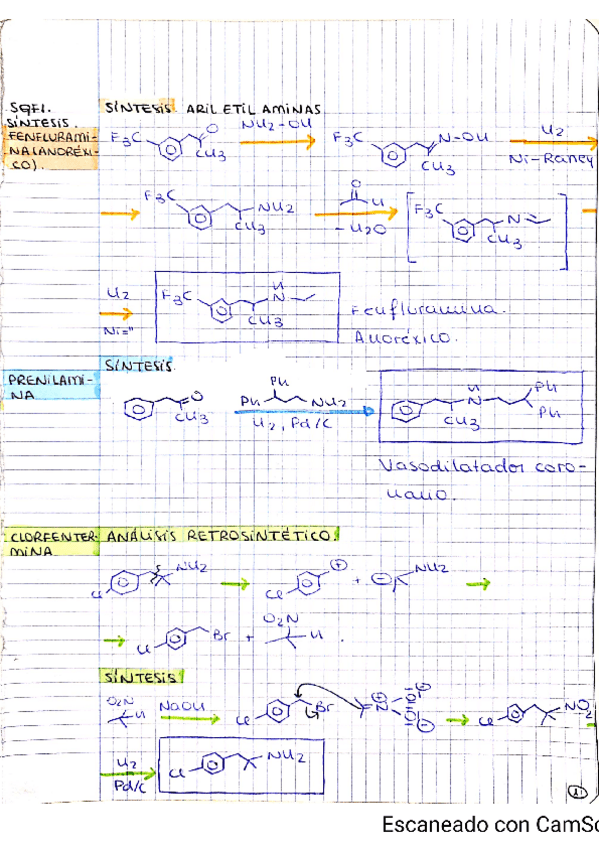 SQF1.
SÍNTESIS.
FENFLURAMI-
NA (ANORÉXI-
CO).
SÍNTESIS ARIL ETIL AMINAS
F3C O CH3 NH2-OH F3C N-OH CH3 H2 Ni-Raney
F3C NH2 CH3 O H -H2O F3C N CH3
H2 Ni=" F3C H N CH3 Fenfluramina.
Anoréxico.
SÍNTESIS.
PRENILAMI-
NA
O CH3 Ph Ph NH2 H2, Pd/C H N CH3 Ph Ph
Vasodilatador coro-
nario.
CLORFENTER-
MINA
ANÁLISIS RETROSINTÉTICO.
Cl NH2 Cl + + - NH2
Cl Br + O2N H.
SÍNTESIS
O2N H NaOH Cl Br N O O Cl NO2
H2 Pd/C Cl NH2
1
Escaneado con CamSc